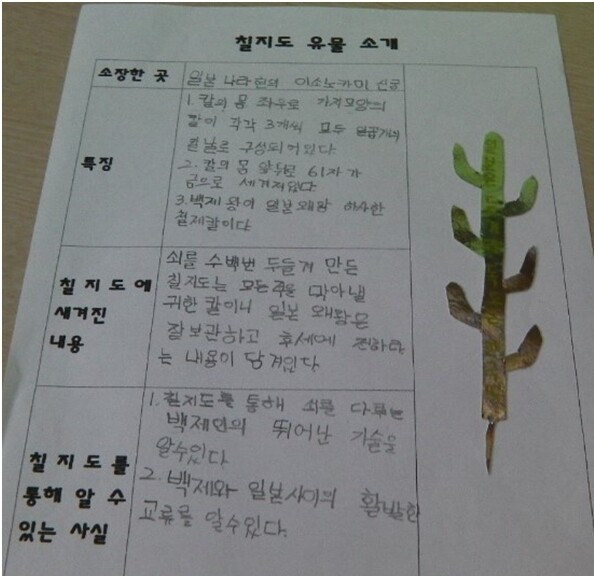 칠지도 유물 소개
소장한 곳
일본 나라현의 이소노카미 신궁
특징
1. 칼의 몸 좌우로 가지모양의
칼이 각각 3개씩 모두 일곱개의
칼날로 구성되어있다.
2. 칼의 몸 앞뒤로 61자가
금으로 새겨져있다
3. 백제 왕이 일본 왜왕 하사한
철제칼이다.
칠지도에
새겨진
내용
쇠를 수백번 두들겨 만든
칠지도는 모든 적을 막아낼
귀한 칼이니 일본 왜왕은
잘 보관하고 후세에 전하라
는 내용이 담겨있다
칠지도를
통해 알 수
있는 사실
1. 칠지도를 통해 쇠를 다루는
백제인의 뛰어난 기술을
알수있다
2. 백제와 일본사이의 활발한
교류를 알수있다.